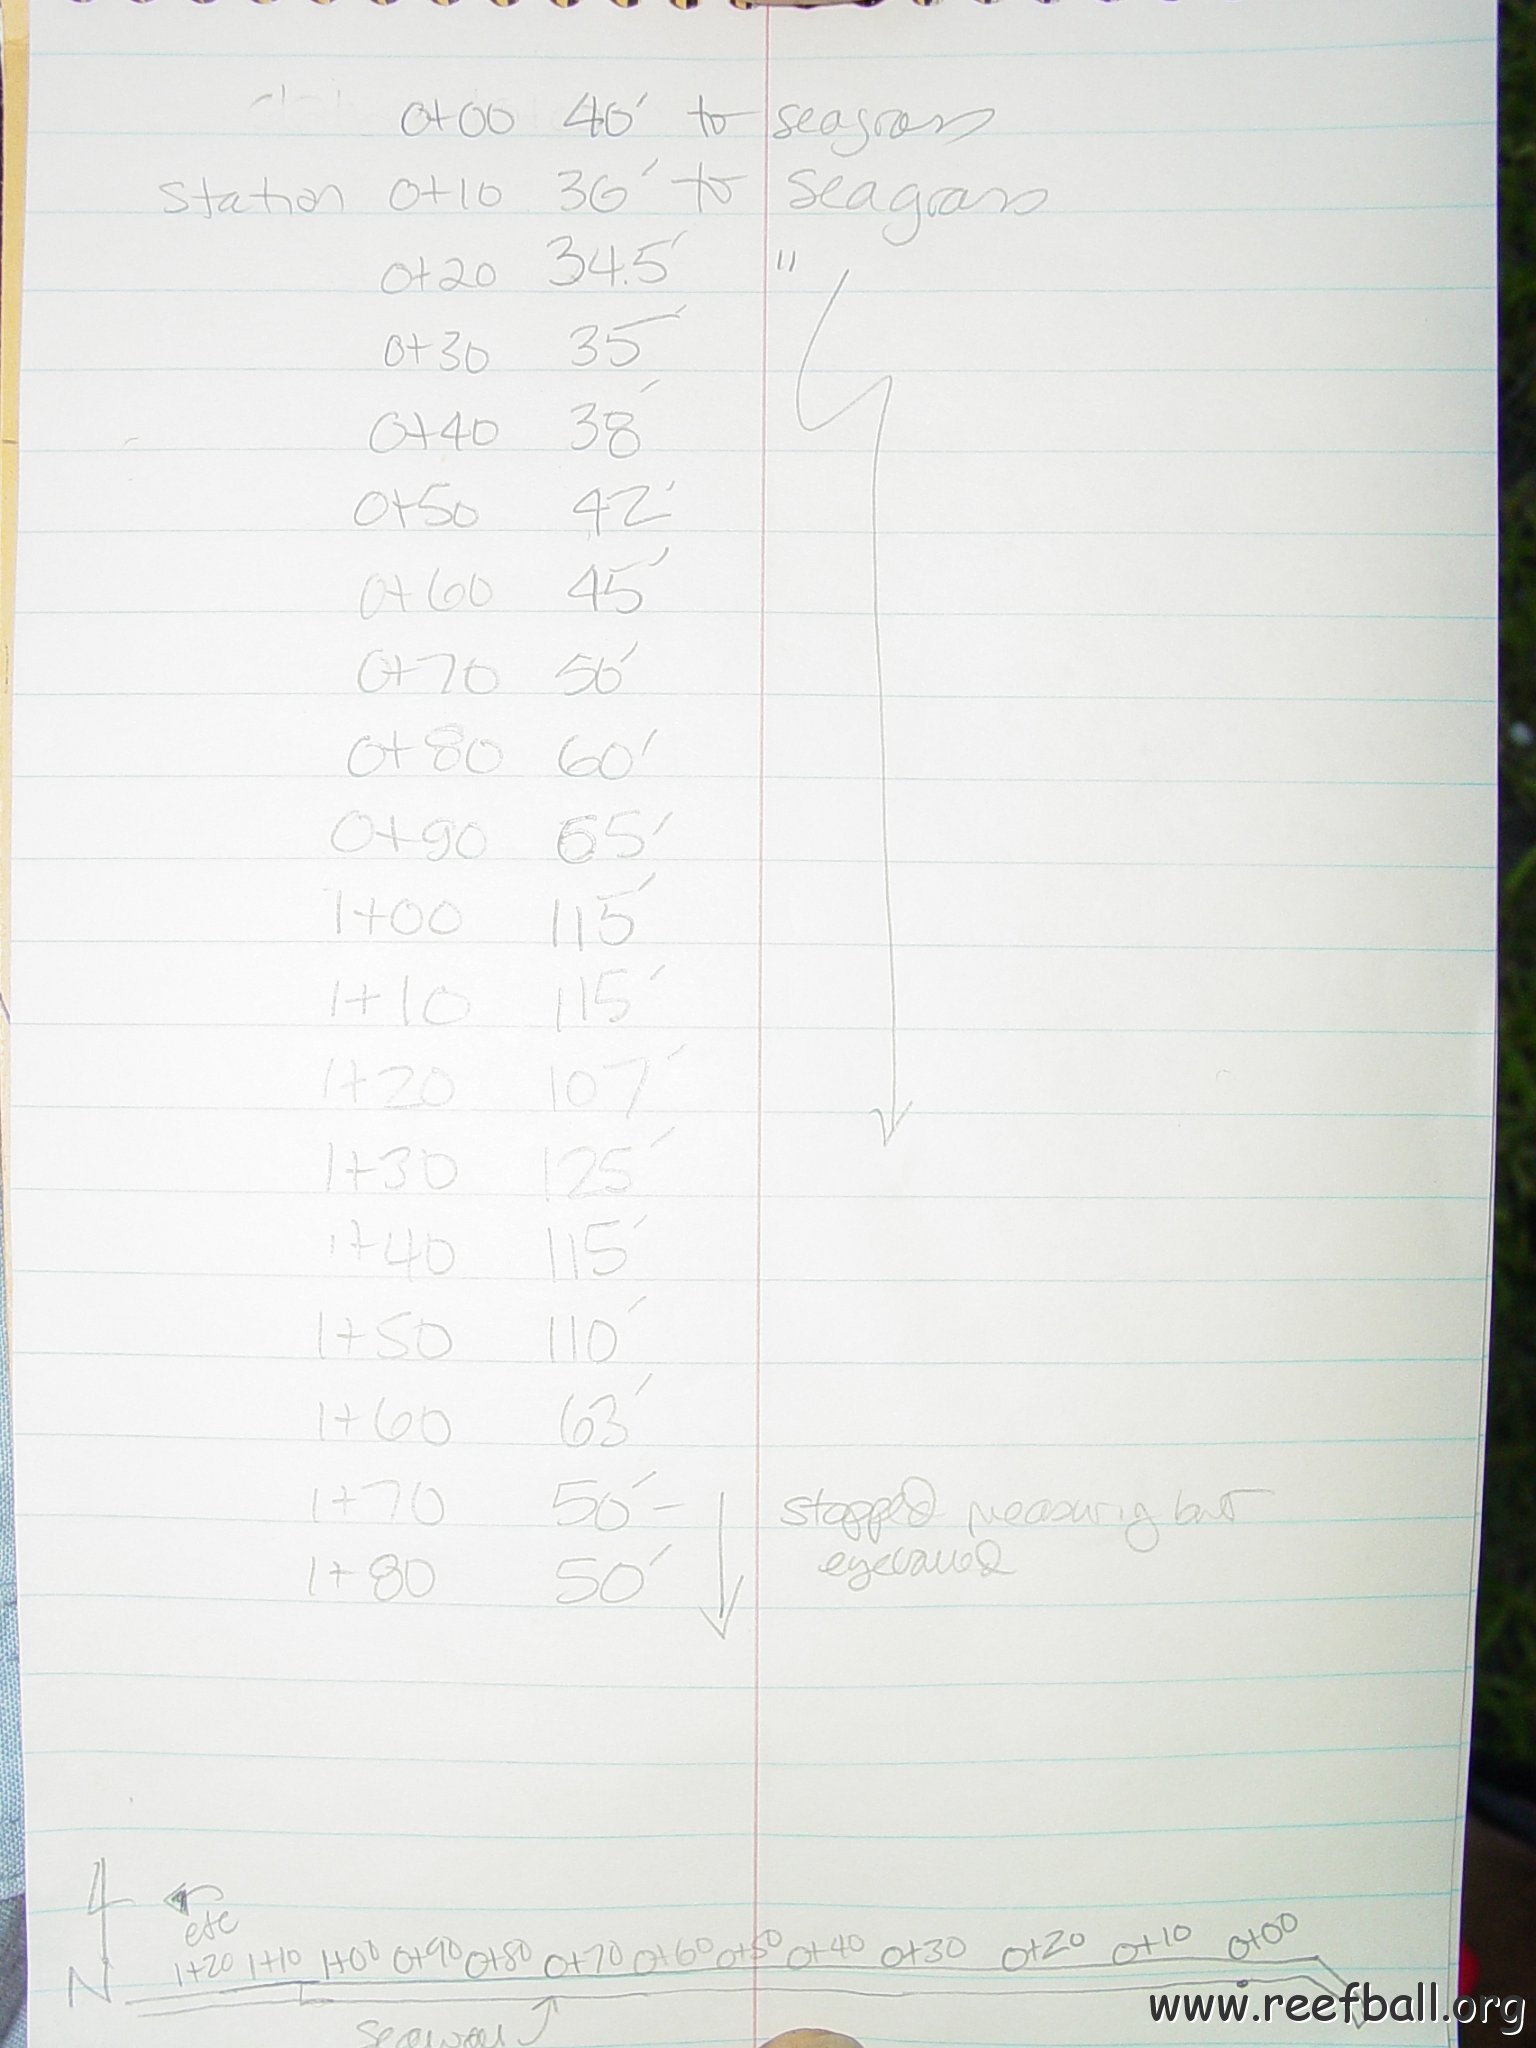 0+00 40' to seagrass
Station 0+10 36' to seagrass
0+20 34.5' "
0+30 35'
0+40 38'
0+50 42'
0+60 45'
0+70 50'
0+80 60'
0+90 65'
1+00 115'
1+10 115'
1+20 107'
1+30 125'
1+40 115'
1+50 110'
1+60 63'
1+70 50' - stopped measuring but
eyeballed
1+80 50'
etc
1+20 1+10 1+00 0+90 0+80 0+70 0+60 0+50 0+40 0+30 0+20 0+10 0+00
N
seawall
www.reefball.org